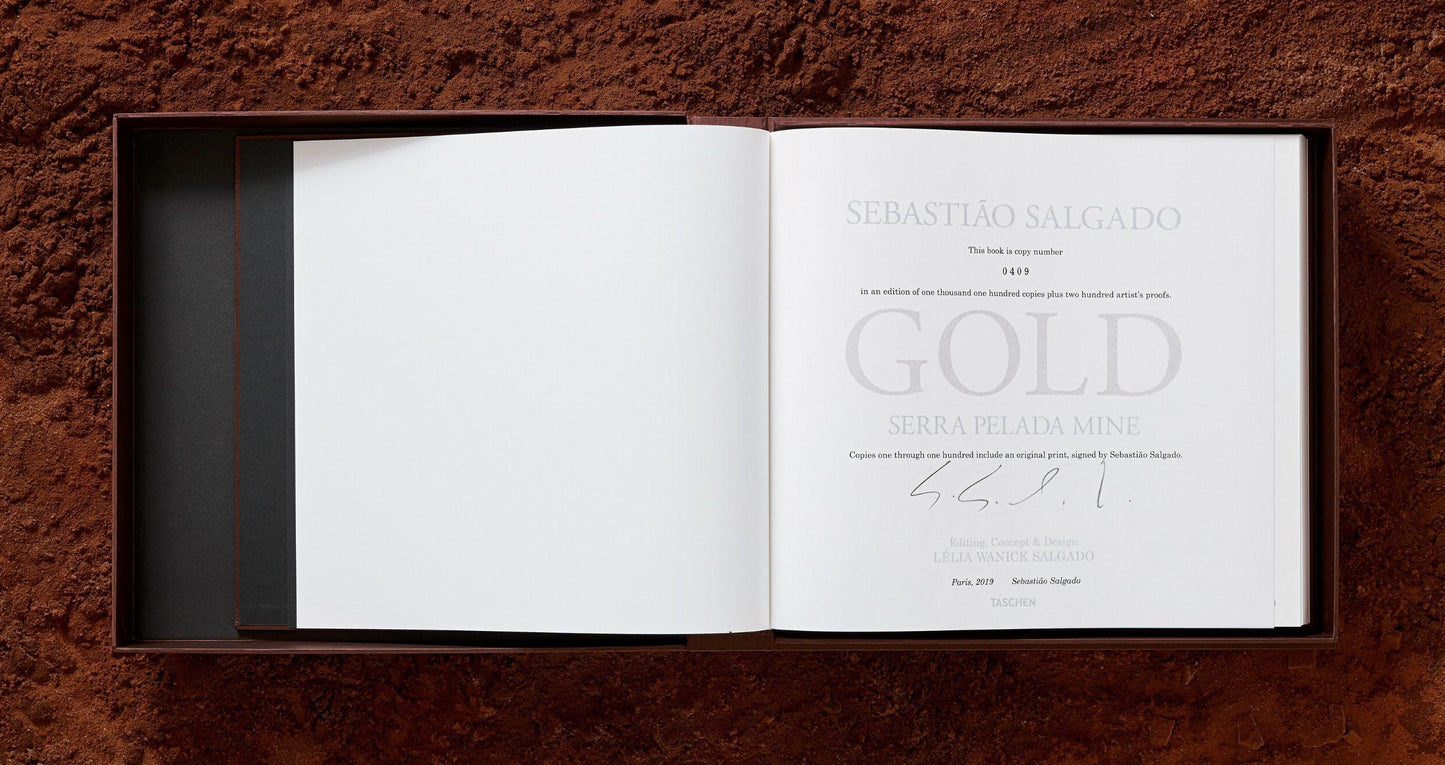 SEBASTIÃO SALGADO
This book is copy number
0409
in an edition of one thousand one hundred copies plus two hundred artist's proofs.
GOLD
SERRA PELADA MINE
Copies one through one hundred include an original print, signed by Sebastião Salgado.
Editing, Concept & Design
LÉLIA WANICK SALGADO
Paris, 2019 Sebastião Salgado
TASCHEN